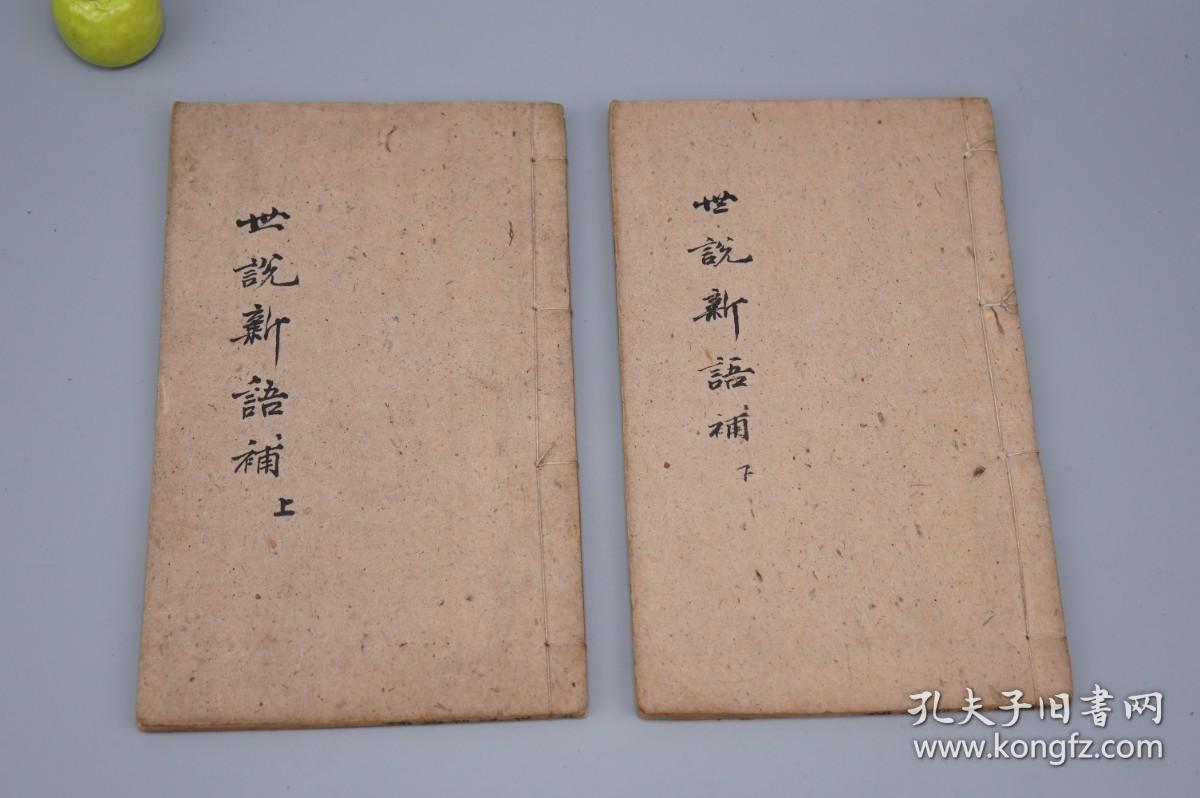 世說新語補
上
世說新語補
下
孔夫子旧書网
www.kongfz.com